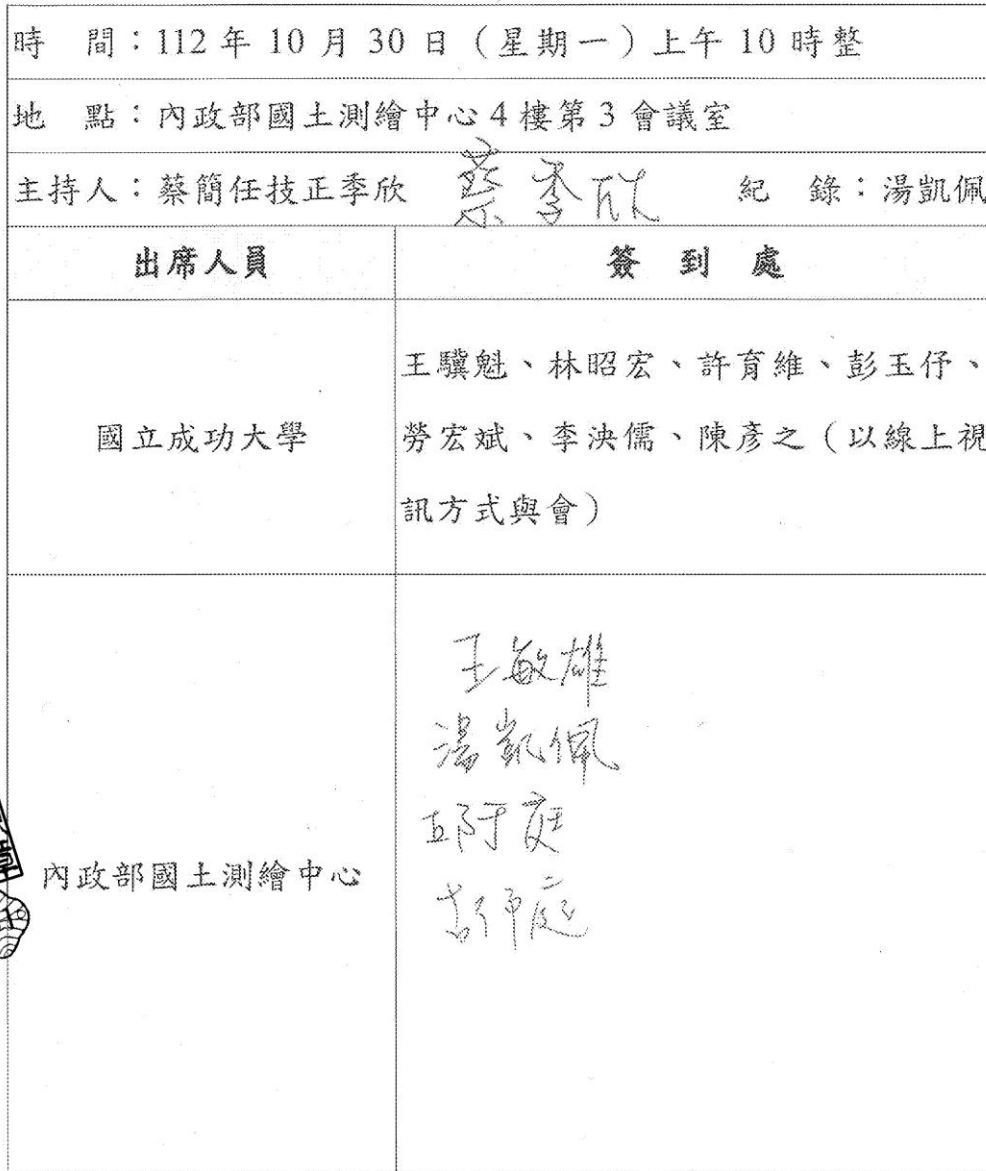 時 間：112 年 10 月 30 日（星期一）上午 10 時整
地 點：內政部國土測繪中心 4 樓第 3 會議室
主持人：蔡簡任技正季欣 蔡季欣 紀 錄：湯凱佩
出席人員 簽 到 處
國立成功大學
王驥魁、林昭宏、許育維、彭玉伃、
勞宏斌、李洪儒、陳彥之（以線上視
訊方式與會）
內政部國土測繪中心
王敏雄
湯凱佩